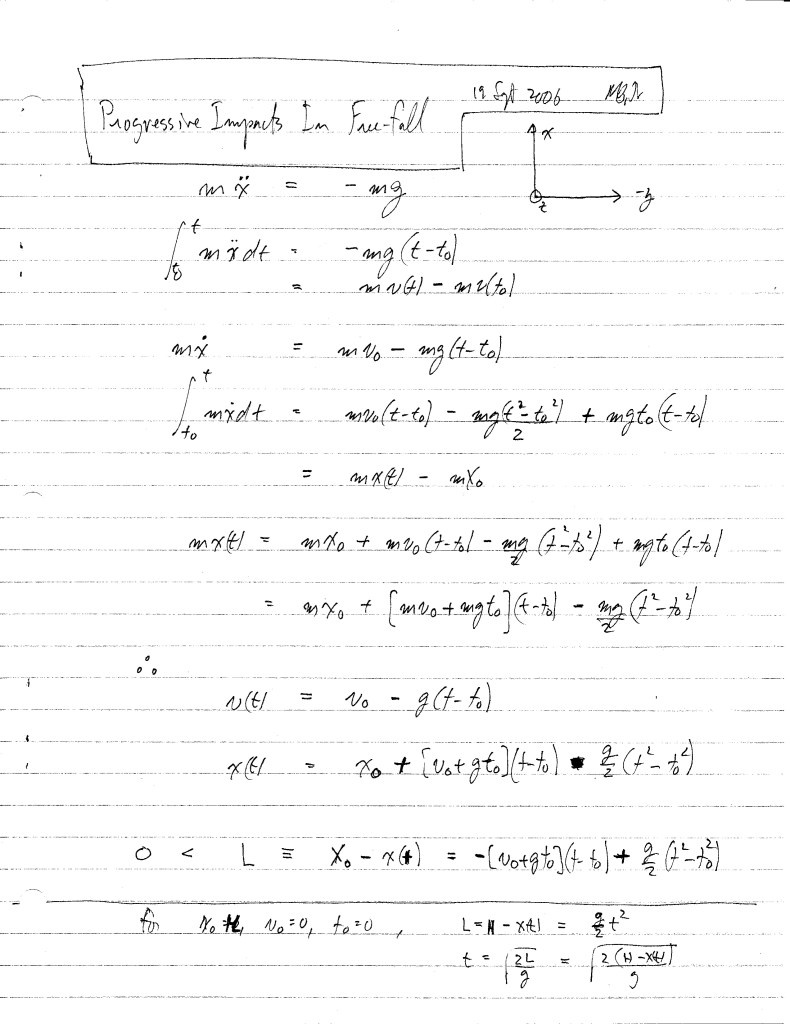 19 Sept 2006
Progressive Impacts In Free-fall
x
z
-y
mẍ = - mg
∫_{t0}^{t} mẍdt = -mg(t-t0)
= mv(t) - mv(t0)
mẋ = mv0 - mg(t-t0)
∫_{t0}^{t} mẋdt = mv0(t-t0) - mg(t²-t0²)/2 + mgt0(t-t0)
= mx(t) - mx0
mx(t) = mx0 + mv0(t-t0) - mg/2 (t²-t0²) + mgt0(t-t0)
= mx0 + [mv0+mgt0](t-t0) - mg/2 (t²-t0²)
∴
v(t) = v0 - g(t-t0)
x(t) = x0 + [v0+gt0](t-t0) - g/2 (t²-t0²)
0 < L ≡ x0 - x(t) = -[v0+gt0](t-t0) + g/2 (t²-t0²)
for x0=H, v0=0, t0=0, L=H - x(t) = g/2 t²
t = √(2L/g) = √(2(H-x(t))/g)